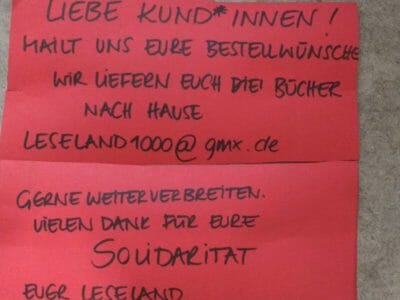 LIEBE KUND*INNEN!
MAILT UNS EURE BESTELLWÜNSCHE
WIR LIEFERN EUCH DIE BÜCHER
NACH HAUSE
LESELAND1000@gmx.de
GERNE WEITERVERBREITEN.
VIELEN DANK FÜR EURE
SOLIDARITÄT
EUER LESELAND